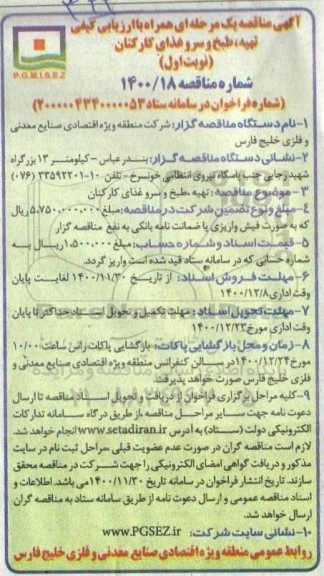 آگهی مناقصه یک مرحله ای همراه با ارزیابی کیفی
تهیه، طبخ و سرو غذای کارکنان
(نوبت اول)
شماره مناقصه ۱۴۰۰/۱۸
(شماره فراخوان در سامانه ستاد ۲۰۰۰۰۰۴۳۴۰۰۰۰۰۵۳)
P.G.M.I.S.E.Z
۱-نام دستگاه مناقصه گزار: شرکت منطقه ویژه اقتصادی صنایع معدنی
و فلزی خلیج فارس
۲-نشانی دستگاه مناقصه گزار: بندرعباس -کیلومتر ۱۳ بزرگراه
شهید رجایی جنب پاسگاه نیروی انتظامی خونسرخ - تلفن ۱۰-۳۳۵۹۲۲۰۱ (۰۷۶)
۳-موضوع مناقصه: تهیه ،طبخ و سرو غذای کارکنان
۴-مبلغ و نوع تضمین شرکت در مناقصه: مبلغ ۵,۷۵۰,۰۰۰,۰۰۰ ریال
که به صورت فیش واریزی یا ضمانت نامه بانکی به نفع مناقصه گزار
۵-قیمت اسناد و شماره حساب: مبلغ ۱,۵۰۰,۰۰۰ ریال به
شماره حسابی که در سامانه ستاد قید شده است واریز گردد.
۶-مهلت فروش اسناد: از تاریخ ۱۴۰۰/۱۱/۳۰ لغایت پایان
وقت اداری ۱۴۰۰/۱۲/۸
۷-مهلت تحویل اسناد: مهلت تکمیل و تحویل اسناد حداکثر تا پایان
وقت اداری مورخ ۱۴۰۰/۱۲/۲۳
۸-زمان و محل بازگشایی پاکات: بازگشایی پاکات راس ساعت ۱۰/۰۰
مورخ ۱۴۰۰/۱۲/۲۴ در سالن کنفرانس منطقه ویژه اقتصادی صنایع معدنی و
فلزی خلیج فارس صورت خواهد پذیرفت.
۹-کلیه مراحل برگزاری فراخوان از دریافت و تحویل اسناد مناقصه تا ارسال
دعوت نامه جهت سایر مراحل مناقصه از طریق درگاه سامانه تدارکات
الکترونیکی دولت (ستاد) به آدرس www.setadiran.ir انجام خواهد شد.
لازم است مناقصه گران در صورت عدم عضویت قبلی ،مراحل ثبت نام در سایت
مذکور و دریافت گواهی امضای الکترونیکی را جهت شرکت در مناقصه محقق
سازند. تاریخ انتشار فراخوان در سامانه تاریخ ۱۴۰۰/۱۱/۳۰ می باشد. اطلاعات و
اسناد مناقصه عمومی و ارسال دعوت نامه از طریق سامانه ستاد به مناقصه گران
ارسال خواهد شد.
۱۰-نشانی سایت شرکت: www.PGSEZ.ir
روابط عمومی منطقه ویژه اقتصادی صنایع معدنی و فلزی خلیج فارس